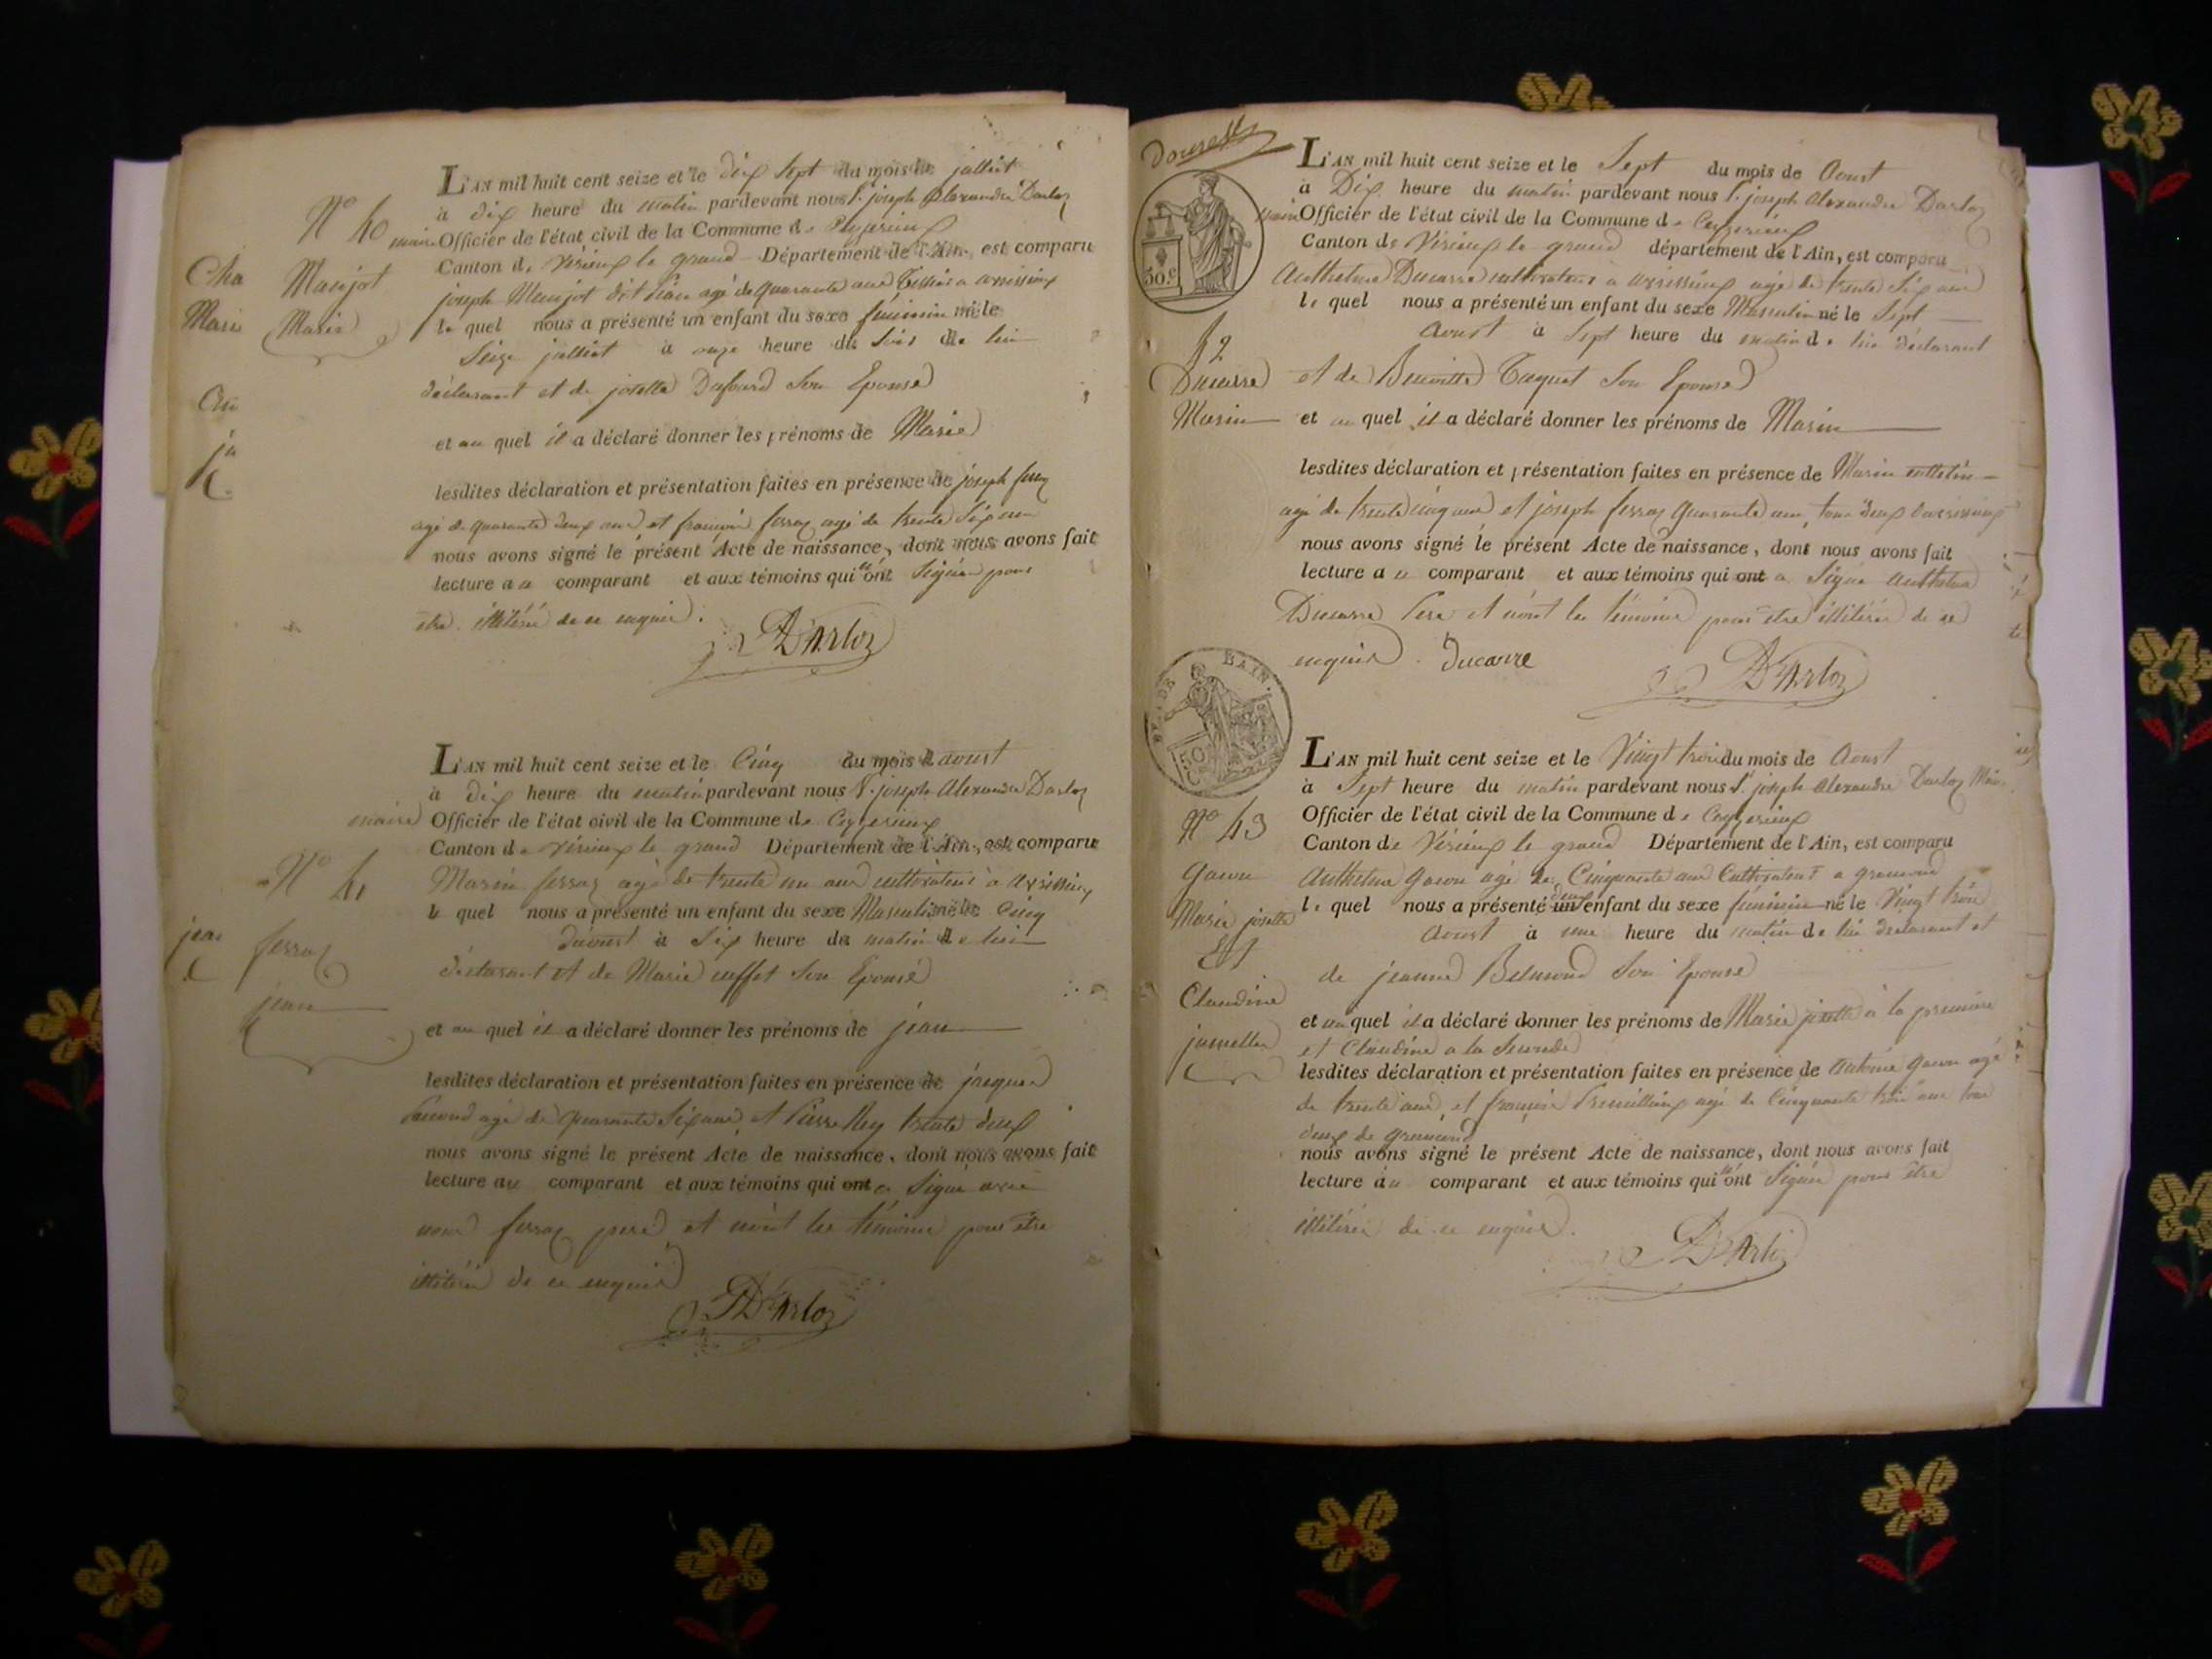 L'AN mil huit cent seize et le dix sept du mois de juillet
N° 40
à dix heure du matin pardevant nous S. joseph Alexandre Darloz
maire Officier de l'état civil de la Commune de Ceyzerieux
Canton de Virieux le grand Département de l'Ain, est comparu
Maujot
joseph Maujot dit agé de quarante ans Tissier a avrissieux
Marie
le quel nous a présenté un enfant du sexe féminin né le
Seize juillet à onze heure du soir de lui
déclarant et de josette Dufourd Son Epouse
et au quel il a déclaré donner les prénoms de Marie
lesdites déclaration et présentation faites en présence de joseph
agé de quarante deux ans et françois ferraz agé de trente six ans
nous avons signé le présent Acte de naissance, dont nous avons fait
lecture au comparant et aux témoins qui n'ont Signés pour
être illitérés de ce enquis.
D'Arloz
L'AN mil huit cent seize et le Cinq du mois d'aoust
à dix heure du matin pardevant nous S. joseph Alexandre Darloz
maire Officier de l'état civil de la Commune de Ceyzerieux
Canton de Virieux le grand Département de l'Ain, est comparu
N° 41
Marin ferraz agé de trente un ans cultivateur a avrissieux
le quel nous a présenté un enfant du sexe Masculin né le Cinq
ferraz
d'aoust à Six heure du matin de lui
déclarant et de Marie cuffet Son Epouse
jean
et au quel il a déclaré donner les prénoms de jean
lesdites déclaration et présentation faites en présence de jacques
agé de quarante Six ans et Pierre Rey trente deux
nous avons signé le présent Acte de naissance, dont nous avons fait
lecture au comparant et aux témoins qui ont a Signé avec
nous ferraz pere et n'ont les témoins pour être
illitérés de ce enquis
D'Arloz
L'AN mil huit cent seize et le Sept du mois de Aoust
à Dix heure du matin pardevant nous S. joseph Alexandre Darloz
maire Officier de l'état civil de la Commune de Ceyzerieux
Canton de Virieux le grand département de l'Ain, est comparu
50.c
Anthelme Ducarre cultivateur a avrissieux agé de trente Six ans
le quel nous a présenté un enfant du sexe Masculin né le Sept
Aoust à Sept heure du matin de lui déclarant
42
Ducarre
et de Benoitte Son Epouse
Marin
et au quel il a déclaré donner les prénoms de Marin
lesdites déclaration et présentation faites en présence de Marin
agé de trente cinq ans et joseph ferraz quarante ans, tous deux d'avrissieux
nous avons signé le présent Acte de naissance, dont nous avons fait
lecture au comparant et aux témoins qui ont a Signé Anthelme
Ducarre Pere et n'ont les témoins pour être illitérés de ce
enquis. Ducarre
D'Arloz
L'AN mil huit cent seize et le Vingt trois du mois de Aoust
à Sept heure du matin pardevant nous S. joseph Alexandre Darloz Maire
Officier de l'état civil de la Commune de Ceyzerieux
N° 43
Canton de Virieux le grand Département de l'Ain, est comparu
Anthelme agé de Cinquante ans Cultivateur a
le quel nous a présenté un deux enfant du sexe féminin né le Vingt trois
Marie josette
Aoust à une heure du matin de lui déclarant et
Et
de jeanne Son Epouse
Claudine
et au quel il a déclaré donner les prénoms de Marie josette à la premiere
jumelles
et Claudine a la Seconde
lesdites déclaration et présentation faites en présence de Antoine agé
de trente ans, et françois agé de Cinquante trois ans tous
deux de
nous avons signé le présent Acte de naissance, dont nous avons fait
lecture au comparant et aux témoins qui n'ont Signés pour être
illitérés de ce enquis.
D'Arloz